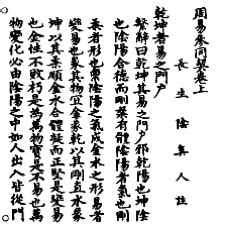 周易參同契卷上
長生陰真人註
乾坤者易之門户
繫辭曰乾坤其易之門户邪乾陽也坤陰
也陰陽合德而剛柔有體陰陽者氣也剛
柔者形也稟陰陽之氣成金水之形易者
變易也象其物宜金象乾以其剛直水象
坤以其柔順金水合體凝而正堅是變易
也金性不敗朽是爲萬物寶是不易也萬
物變化必由陰陽之中如人出入皆從門